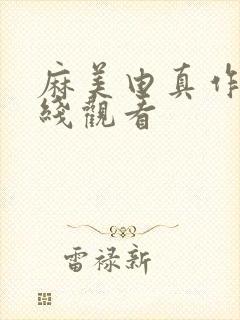 麻美由真作
綫觀看
雷禄新